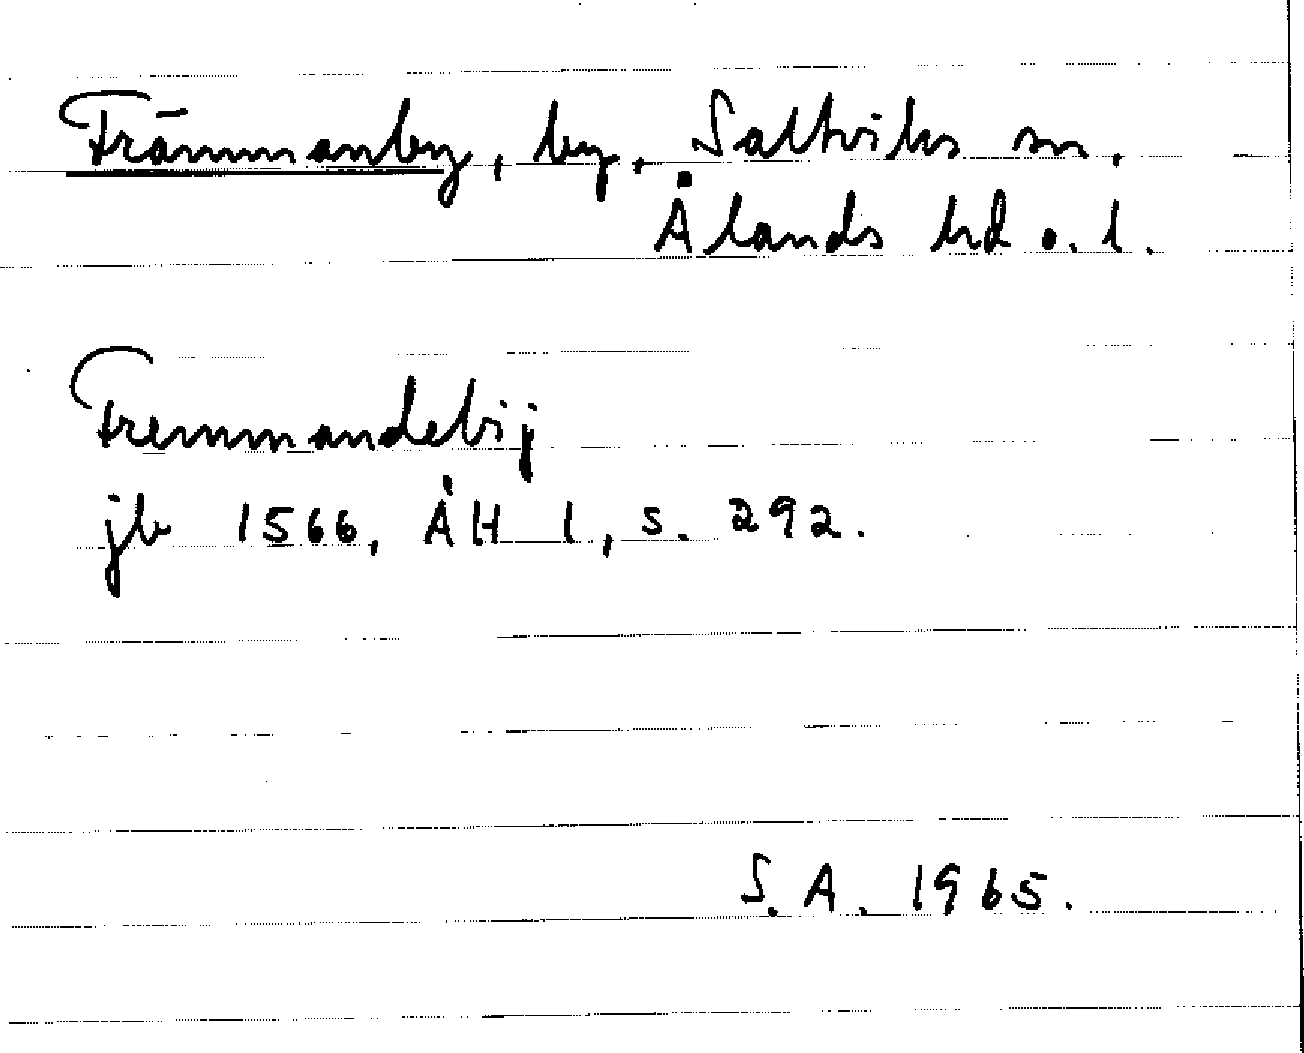 Främmanby, by, Saltviks sn.
Ålands hd o. l.
Fremmandebij
jb 1566, ÅH 1, s. 292.
S. A. 1965.